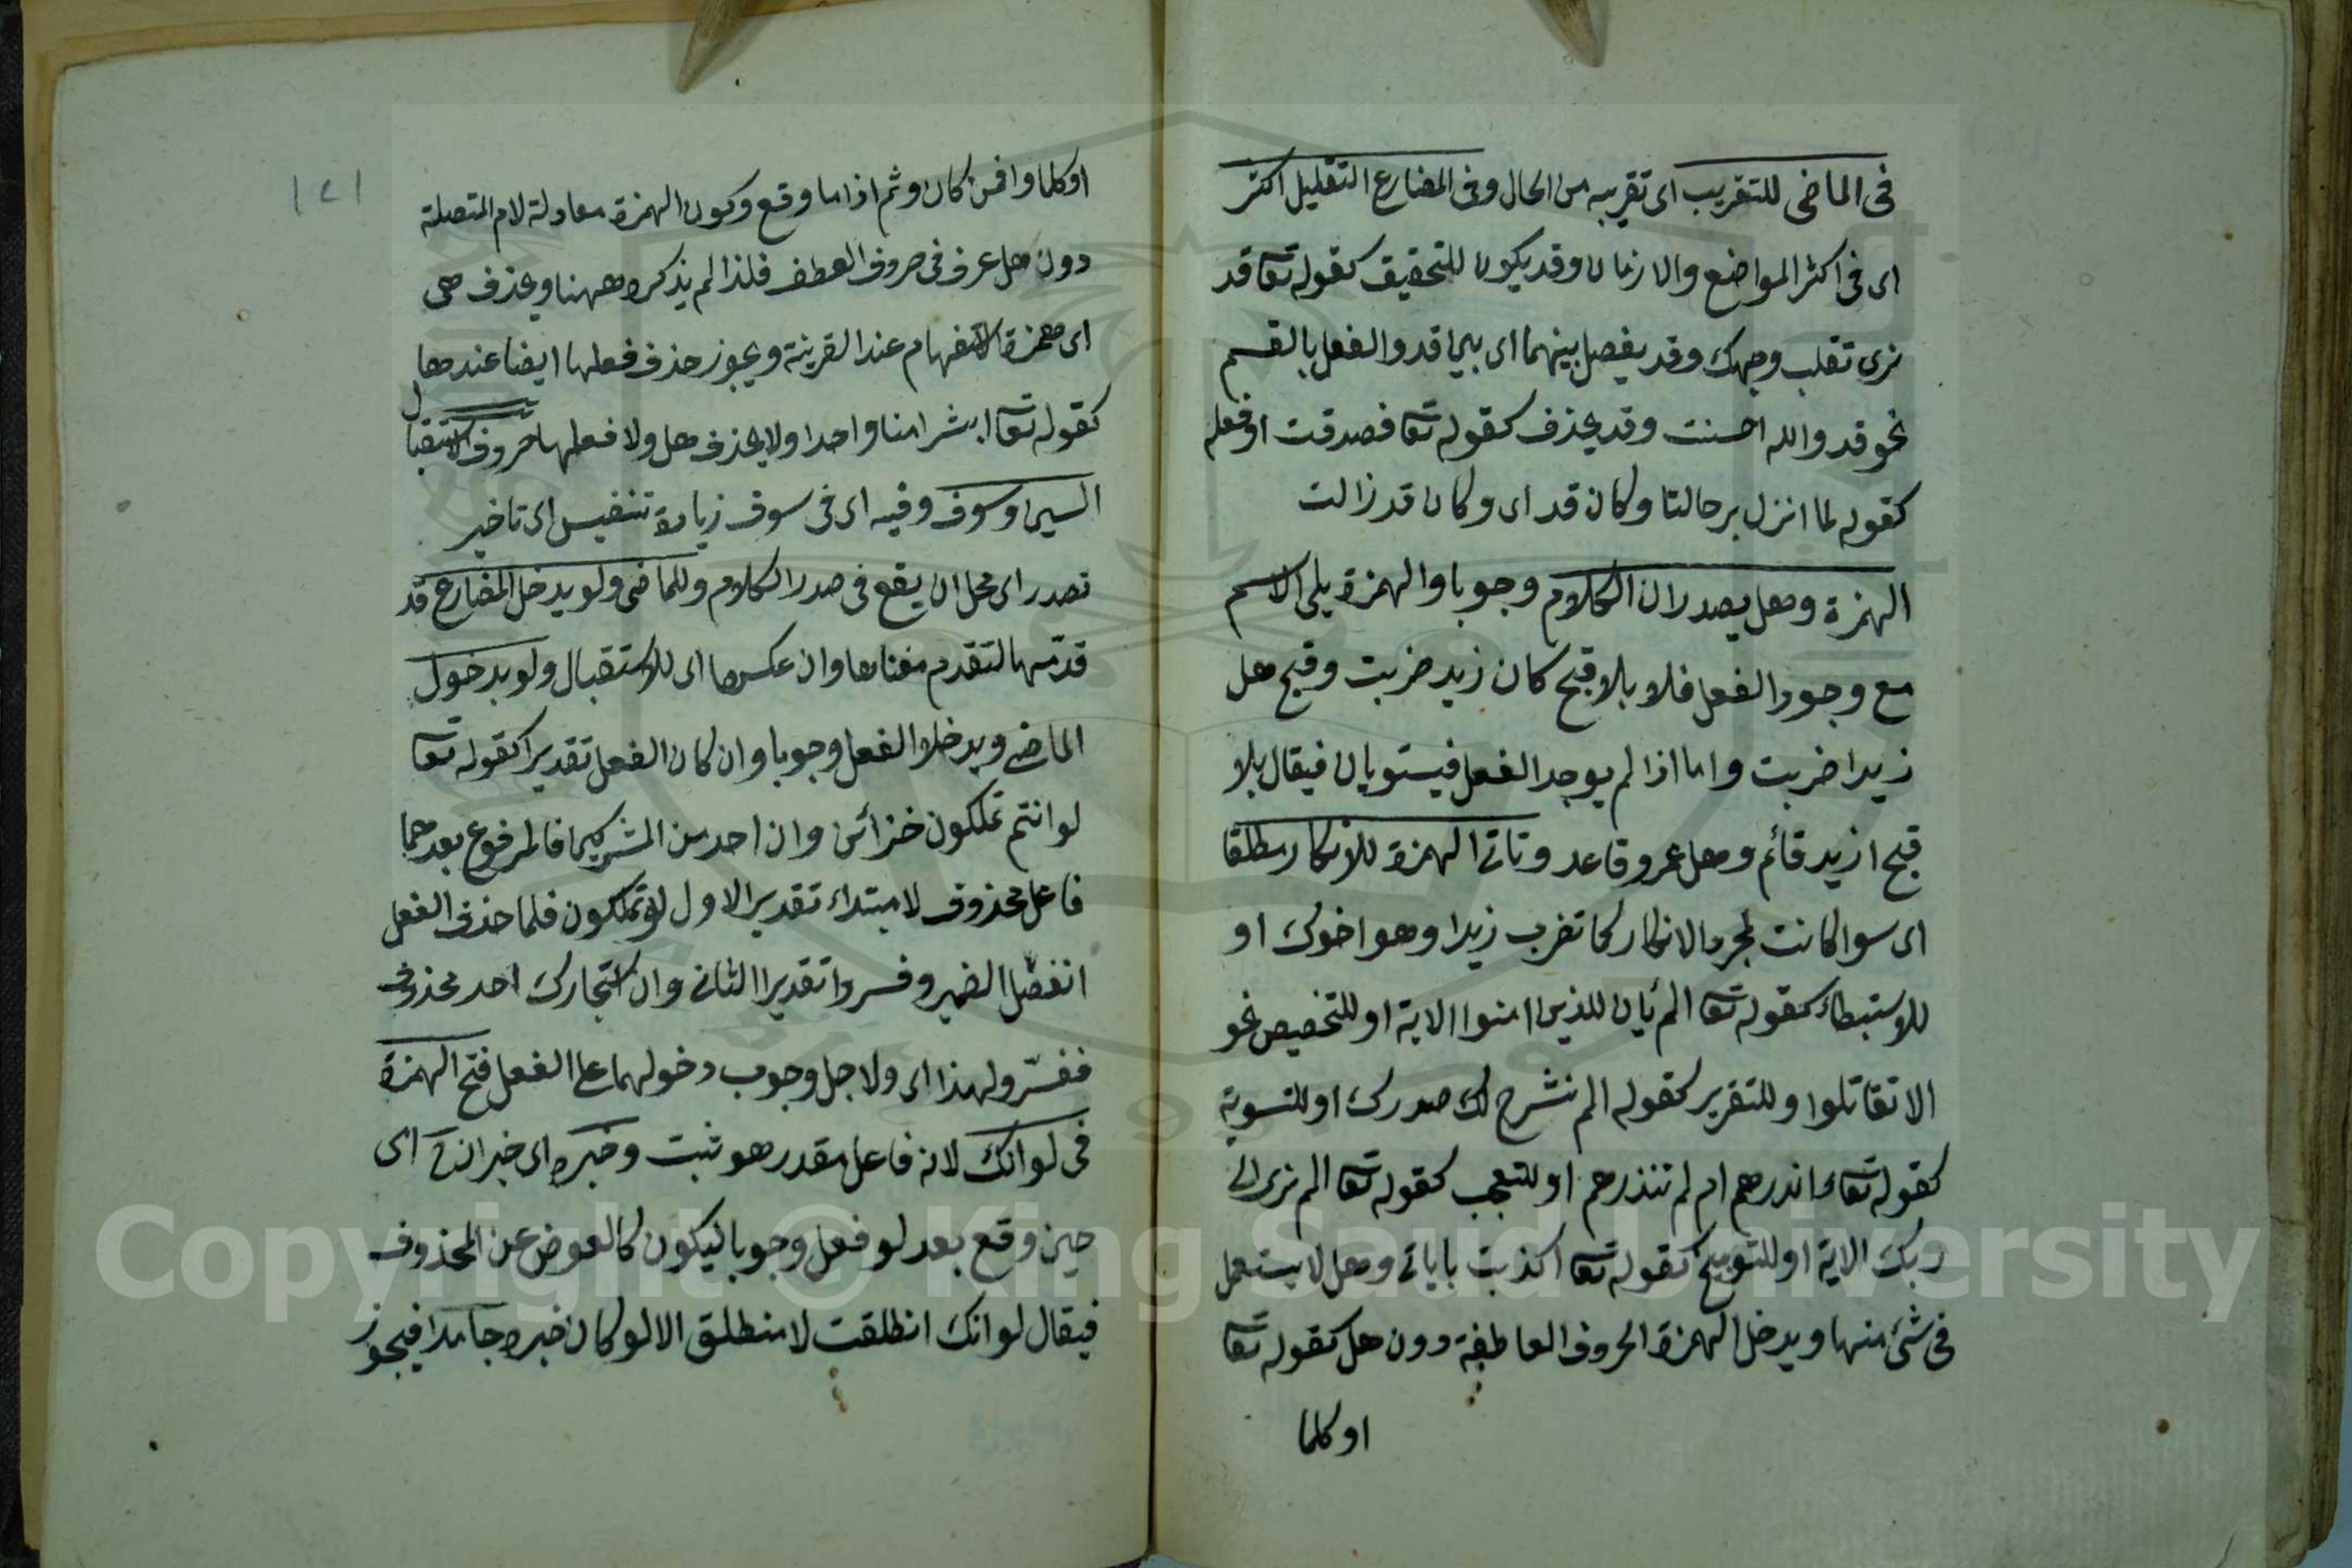 فى الماضى للتقريب اى تقريبه من الحال وفى المضارع التقليل اكثر
اى فى اكثر المواضع والازمان وقد يكون للتحقيق كقوله تعا قد
نرى تقلب وجهك وقد يفصل بينهما اى بين قد والفعل بالقسم
نحو قد والله احسنت وقد يحذف كقوله تعا فصدقت او فعله
كقوله لما انزل برحالنا وكان قد اى وكان قد زالت
الهمزة وهل يصدران الكلام وجوبا والهمزة يلى الاسم
مع وجود الفعل فلا بلا قبح كان زيد ضربت وقبح هل
زيدا ضربت واما اذا لم يوجد الفعل فيستويان فيقال بلا
قبح ازيد قائم وهل عمرو قاعد وتاتى الهمزة للانكار مطلقا
اى سوا كانت لمجرد الانكار كما تضرب زيدا وهو اخوك او
للاستبطاء كقوله تعا الم يأن للذين امنوا الاية او للتخصيص نحو
الا تقاتلوا وللتقرير كقوله الم نشرح لك صدرك او للتسوية
كقوله تعا ءانذرهم ام لم تنذرهم او للتعجب كقوله تعا الم ترى الى
ربك الاية او للتوبيخ كقوله تعا اكذبت باياتى وهل لا يستعمل
فى شئ منها ويدخل الهمزة الحروف العاطفة دون هل كقوله تعا
او كلما
١٢١
او كلما وافمن كان وثم اذا ما وقع وكون الهمزة معادلة لام المتصلة
دون هل عرف فى حروف العطف فلذا لم يذكره ههنا ويحذف هى
اى همزة الاستفهام عند القرينة ويجوز حذف فعلها ايضا عندها
كقوله تعا ابشرا منا واحدا ولا يحذف هل ولا فعلها حروف الاستقبال
السين وسوف وفيه اى فى سوف زيادة تنفيس اى تاخير
تصدر اى محل ان يقع فى صدر الكلام وللماضى ولو يدخل المضارع قد
قدمها لتقدم معناها وان عكسها اى للاستقبال ولو بدخول
الماضى ويدخلا الفعل وجوبا وان كان الفعل تقديرا كقوله تعا
لو انتم تملكون خزائن وان احد من المشركين فالمرفوع بعدهما
فاعل محذوف لا مبتداء تقدير الاول لو تملكون فلما حذف الفعل
انفصل الضمير وفسر وا تقدير الثانى وان استجارك احد محذوف
ففسر ولهذا اى ولاجل وجوب دخولهما على الفعل فتح الهمزة
فى لو انك لانه فاعل مقدر هو ثبت وخبره اى خبر ان اى
حين وقع بعد لو فعل وجوبا ليكون كالعوض عن المحذوف
فيقال لو انك انطلقت لا منطلق الا لو كان خبره جامدا فيجوز
Copyright © King Saud University